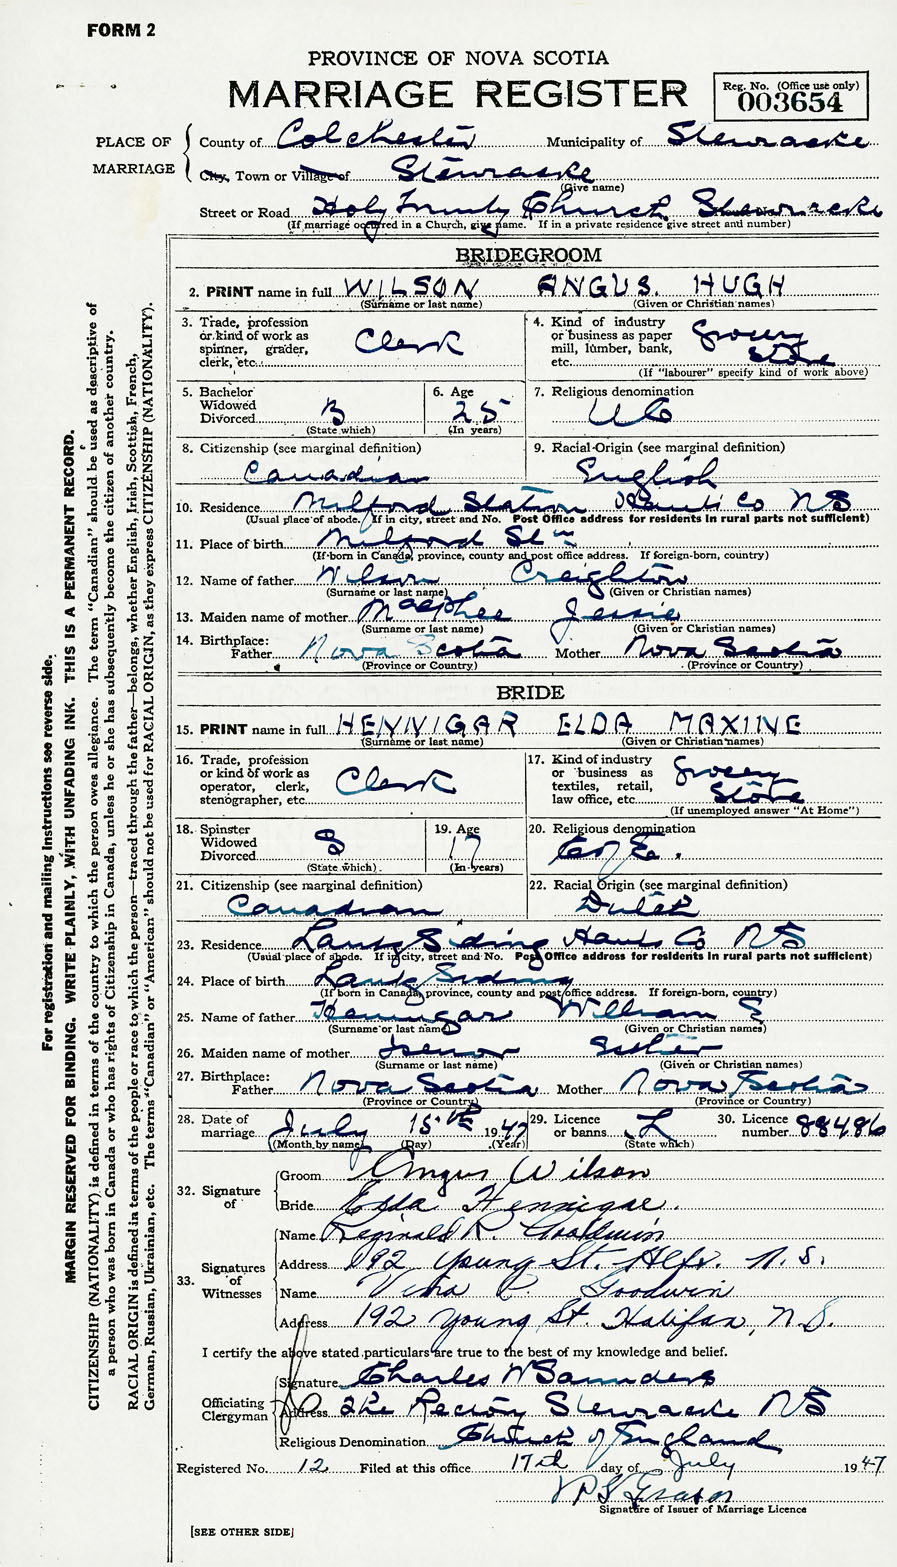 FORM 2
PROVINCE OF NOVA SCOTIA
MARRIAGE REGISTER
Reg. No. (Office use only)
003654
PLACE OF MARRIAGE
County of Colchester Municipality of Stewiacke
City, Town or Village of Stewiacke
(Give name)
Street or Road Holy Trinity Church Stewiacke
(If marriage occurred in a Church, give name. If in a private residence give street and number)
BRIDEGROOM
2. PRINT name in full WILSON ANGUS. HUGH
(Surname or last name) (Given or Christian names)
3. Trade, profession or kind of work as spinner, grader, clerk, etc. Clerk
4. Kind of industry or business as paper mill, lumber, bank, etc. Grocery Store
(If "labourer" specify kind of work above)
5. Bachelor Widowed Divorced B
(State which)
6. Age 25
(In years)
7. Religious denomination U C
8. Citizenship (see marginal definition) Canadian
9. Racial Origin (see marginal definition) English
10. Residence Milford Station Hants Co NS
(Usual place of abode. If in city, street and No. Post Office address for residents in rural parts not sufficient)
11. Place of birth Milford Stn
(If born in Canada, province, county and post office address. If foreign-born, country)
12. Name of father Wilson Creighton
(Surname or last name) (Given or Christian names)
13. Maiden name of mother MacPhee Jessie
(Surname or last name) (Given or Christian names)
14. Birthplace: Father Nova Scotia Mother Nova Scotia
(Province or Country) (Province or Country)
BRIDE
15. PRINT name in full HENNIGAR ELDA MAXINE
(Surname or last name) (Given or Christian names)
16. Trade, profession or kind of work as operator, clerk, stenographer, etc. Clerk
17. Kind of industry or business as textiles, retail, law office, etc. Grocery Store
(If unemployed answer "At Home")
18. Spinster Widowed Divorced S
(State which)
19. Age 17
(In years)
20. Religious denomination C of E.
21. Citizenship (see marginal definition) Canadian
22. Racial Origin (see marginal definition) Dutch
23. Residence Lantz Siding Hants Co NS
(Usual place of abode. If in city, street and No. Post Office address for residents in rural parts not sufficient)
24. Place of birth Lantz Siding
(If born in Canada, province, county and post office address. If foreign-born, country)
25. Name of father Hennigar William E
(Surname or last name) (Given or Christian names)
26. Maiden name of mother Isenor Esther
(Surname or last name) (Given or Christian names)
27. Birthplace: Father Nova Scotia Mother Nova Scotia
(Province or Country) (Province or Country)
28. Date of marriage July 15th 1947
(Month by name) (Day) (Year)
29. Licence or banns L
(State which)
30. Licence number 88486
32. Signature of
Groom Angus Wilson
Bride Elda Hennigar.
33. Signatures of Witnesses
Name Reginald R. Goodwin
Address 192 Young St. Hlfx. N.S.
Name Goodwin
Address 192 Young St. Halifax, N.S.
I certify the above stated particulars are true to the best of my knowledge and belief.
Officiating Clergyman
Signature Charles W Saunders
Address The Rectory Stewiacke NS
Religious Denomination Church of England
Registered No. 12 Filed at this office 17th day of July 1947
Signature of Issuer of Marriage Licence
[SEE OTHER SIDE]
For registration and mailing instructions see reverse side.
MARGIN RESERVED FOR BINDING. WRITE PLAINLY, WITH UNFADING INK. THIS IS A PERMANENT RECORD.
CITIZENSHIP (NATIONALITY) is defined in terms of the country to which the person owes allegiance. The term "Canadian" should be used as descriptive of
a person who was born in Canada or who has rights of Citizenship in Canada, unless he or she has subsequently become the citizen of another country.
RACIAL ORIGIN is defined in terms of the people or race to which the person—traced through the father—belongs, whether English, Irish, Scottish, French,
German, Russian, Ukrainian, etc. The terms "Canadian" or "American" should not be used for RACIAL ORIGIN, as they express CITIZENSHIP (NATIONALITY).